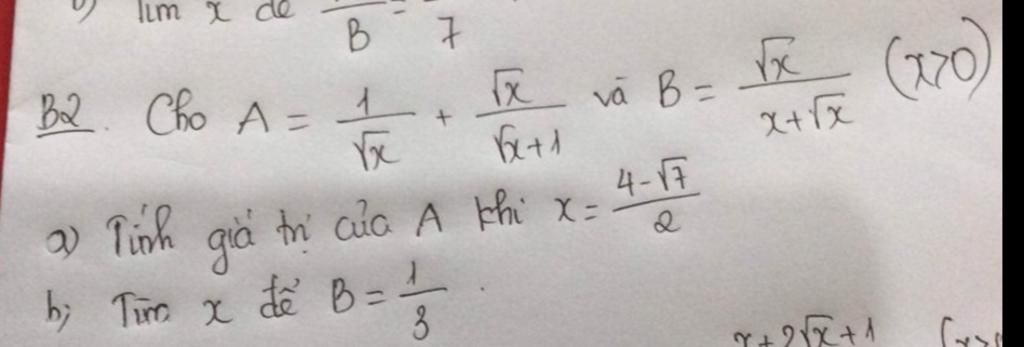 b) Tìm x để /B = /7
B2. Cho A = 1/√x + √x/(√x+1) và B = √x/(x+√x) (x>0)
a) Tính giá trị của A khi x = (4-√7)/2
b; Tìm x để B = 1/3.
x+2√x+1 (x>